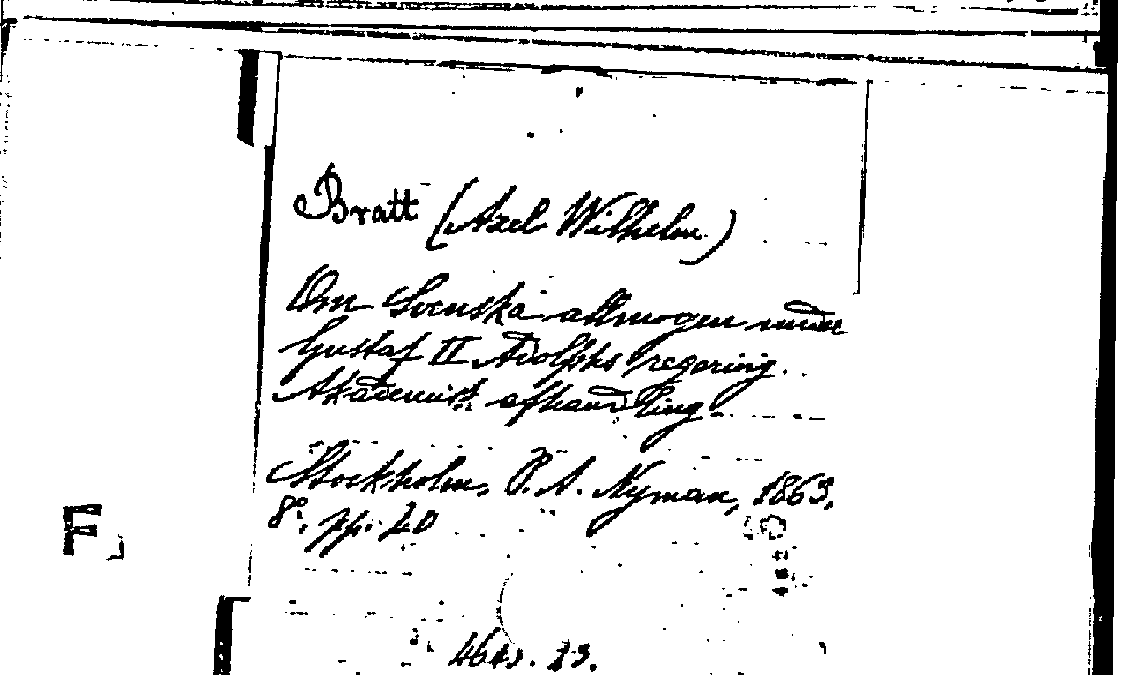 Bratt (Axel Wilhelm)
Om Svenska allmogen under
Gustaf II Adolphs regering.
Akademisk afhandling.
Stockholm, P. A. Nyman, 1863.
8º. pp. 40
F